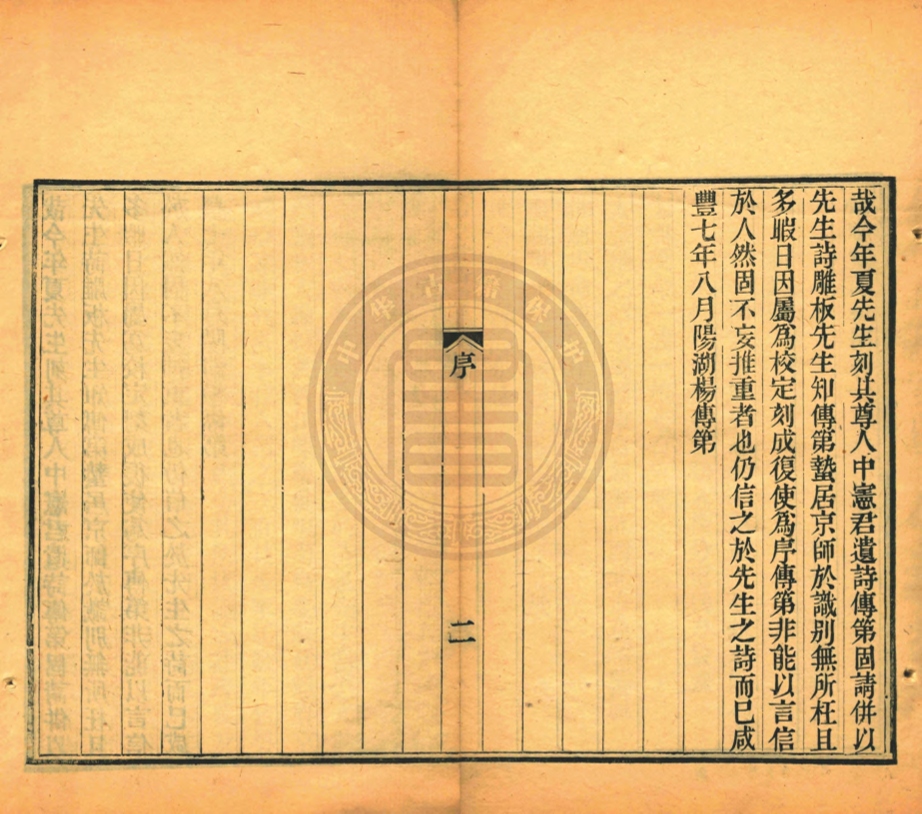 哉今年夏先生刻其尊人中憲君遺詩傳第固請併以
先生詩雕板先生知傳第蟄居京師於識别無所枉且
多暇日因屬爲校定刻成復使爲序傳第非能以言信
於人然固不妄推重者也仍信之於先生之詩而已咸
豐七年八月陽湖楊傳第
序
二
中华古籍保护